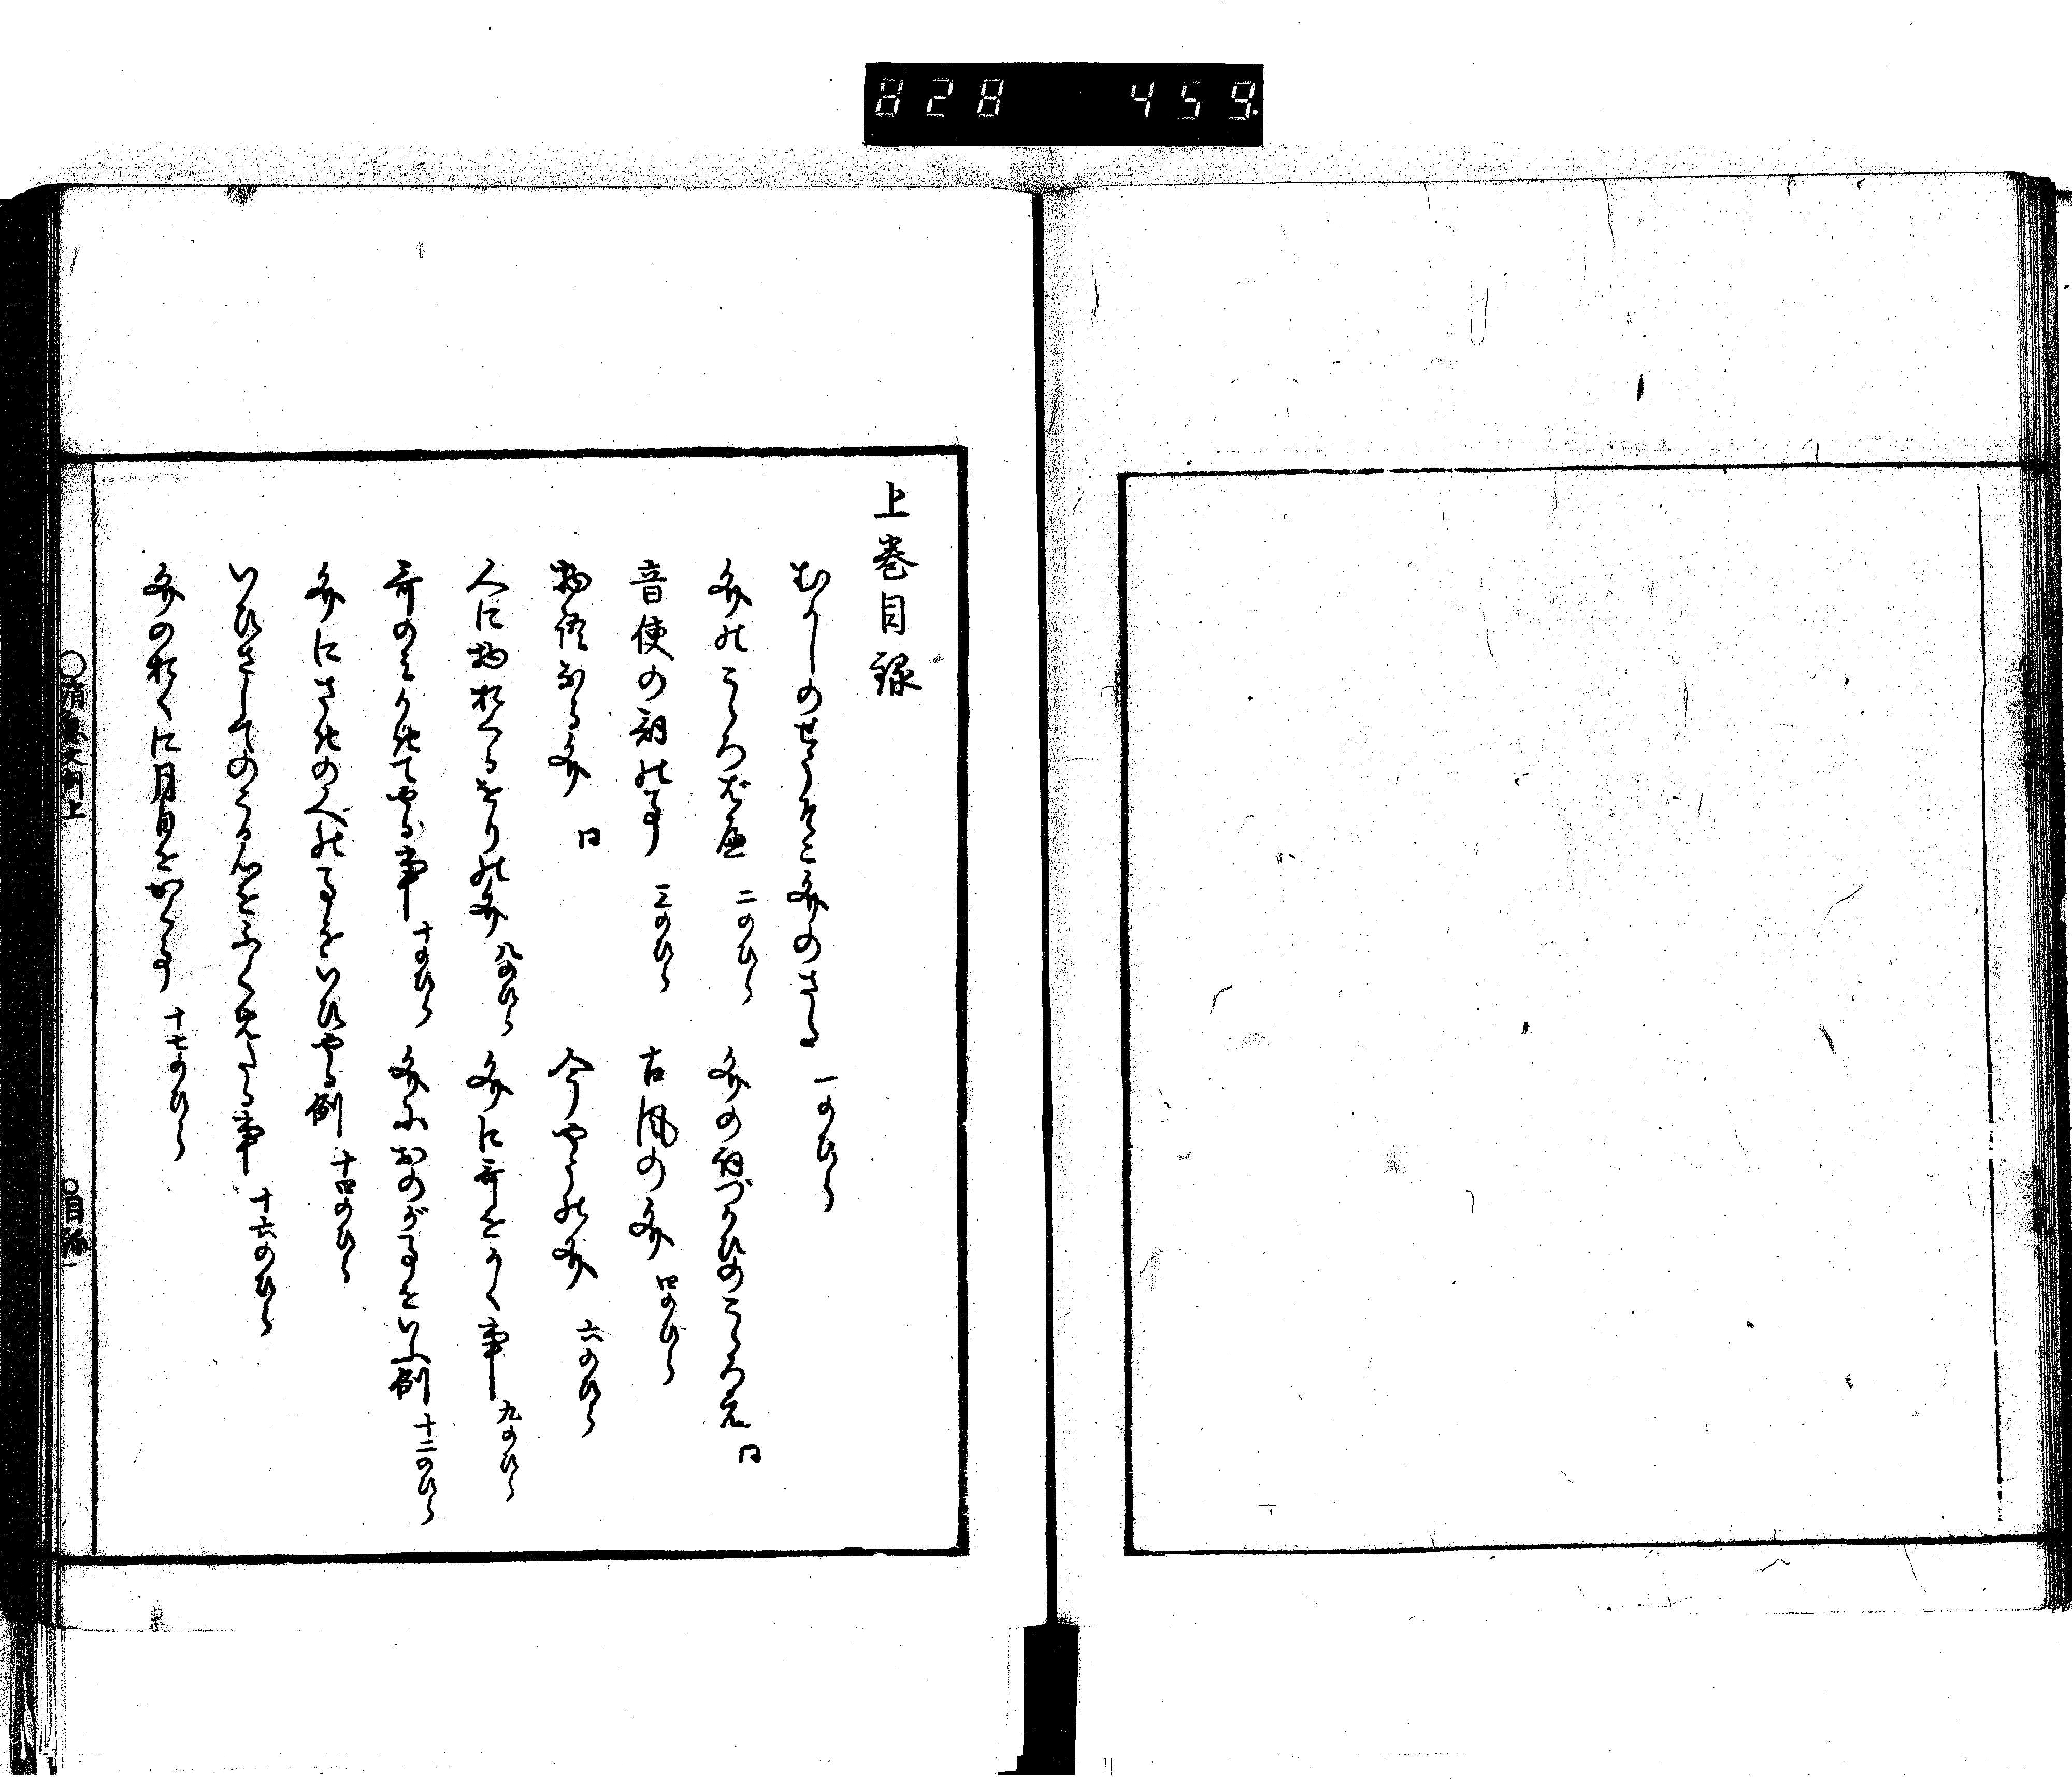 828 459
上巻目録
むかしのせうそこ文のさま 一のひら
文のこゝろばへ 二のひら 文の詞づかひのこゝろえ 同
音便の詞の事 三のひら 古風の文 四のひら
物語なる文 同 今やうの文 六のひら
人に物おくるをりの文 八のひら 文に哥をかく事 九のひら
哥のみかきてやる事 十のひら 文におのがことをいふ例 十二のひら
文にさきの人のことをいひやる例 十四のひら
いひさしてのこる心をふくめたる事 十六のひら
文のおくに月日をかく事 十七のひら
○消息文例上 ○目録 一